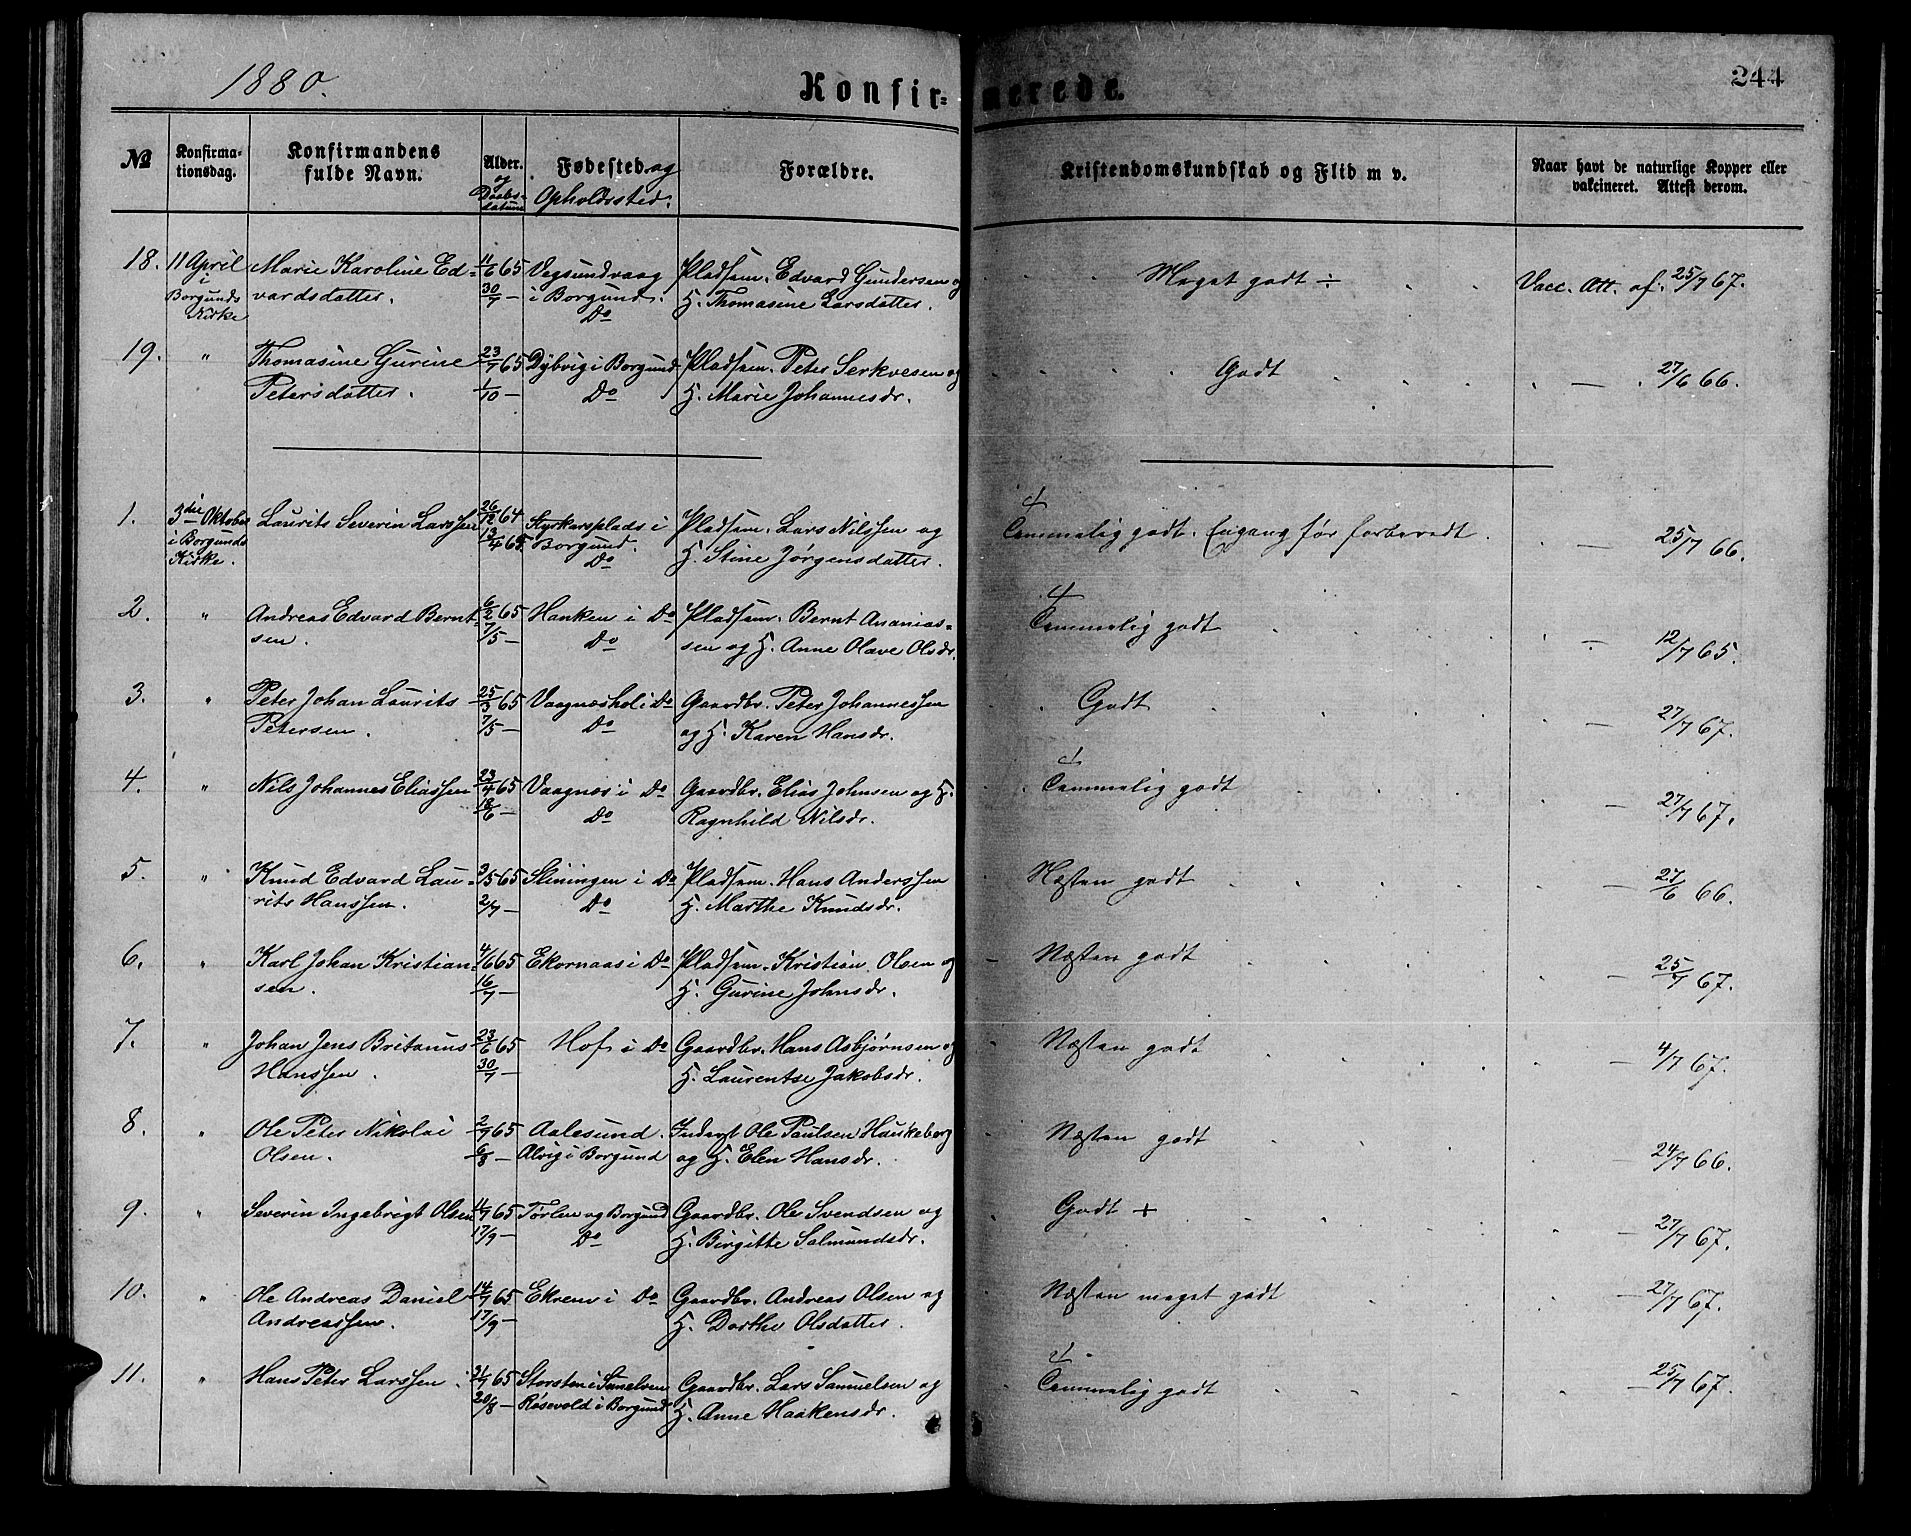 1880.
Konfirmerede.
244
№
Konfirma-
tionsdag.
Konfirmandens
fulde Navn.
Alder.
og
Daabs-
datum
Fødested og
Opholdssted.
Forældre.
Kristendomskundskab og Flid m v.
Naar havt de naturlige Kopper eller
vakcineret. Attest derom.
18. 11 April Marie Karoline Ed- 11/6 65 Vegsundvaag Pladsem. Edvard Gundersen og Meget godt ÷ Vacc. Att. af. 25/7 67.
i Borgunds Kirke vardsdatter. 30/7 — i Borgund. H. Thomasine Larsdatter.
Do
19. " Thomasine Gurine 23/7 65 Dybvig i Borgund Pladsem. Peter Serkvesen og Godt — 27/6 66.
Petersdatter. 1/10 — Do H. Marie Johannesdr.
1. 3die Oktober Laurits Severin Larssen 26/12 64 Styrkarsplads i Pladsem. Lars Nilssen og Temmelig godt. Engang før forberedt. — 25/7 66.
i Borgunds 13/4 65 Borgund. H. Stine Jørgensdatter.
Kirke. Do
2. " Andreas Edvard Bernt- 6/2 65 Hanken i Do Pladsem. Bernt Ananias- Temmelig godt — 12/7 65.
sen. 7/5 — Do sen og H. Anne Olave Olsdr.
3. " Peter Johan Laurits 25/3 65 Vaagnæshol i Do Gaardbr. Peter Johannessen Godt — 27/7 67.
Petersen. 7/5 — Do og H. Karen Hansdr.
4. " Nils Johannes Eliassen 23/4 65 Vaagnæs i Do Gaardbr. Elias Johnsen og H. Temmelig godt — 27/7 67.
18/6 — Do Ragnhild Nilsdr.
5. " Knud Edvard Lau- 3/5 65 Slinningen i Do Pladsem. Hans Anderssen Næsten godt — 27/6 66.
rits Hanssen. 2/7 — Do H. Marthe Knudsdr.
6. " Karl Johan Kristian- 4/6 65 Ekornaas i Do Pladsem. Kristian Olsen og Næsten godt — 25/7 67.
sen. 16/7 — H. Gurine Johnsdr.
7. " Johan Jens Britanus 23/6 65 Hof i Do Gaardbr. Hans Asbjørnsen og Næsten godt — 4/7 67.
Hanssen. 30/7 — H. Laurentse Jakobsdr.
8. " Ole Peter Nikolai 2/7 65 Aalesund. Inderst Ole Paulsen Haukeberg Næsten godt — 24/7 66.
Olsen. 6/8 — Alvig i Borgund og H. Elen Hansdr.
9. " Severin Ingebrigt Olsen 11/7 65 Tørlen og Borgund Gaardbr. Ole Svendsen og Godt + — 27/7 67.
17/9 — Do H. Birgitte Salmundsdr.
10. " Ole Andreas Daniel 14/7 65 Ekrem i Do Gaardbr. Andreas Olsen og Næsten meget godt — 27/7 67.
Andreassen. 17/9 — H. Dorthe Olsdatter.
11. " Hans Peter Larssen 21/7 65 Storsten i Sunelven Gaardbr. Lars Samuelsen og Temmelig godt — 25/7 67.
20/8 — Røsevold i Borgund H. Anne Haakensdr.